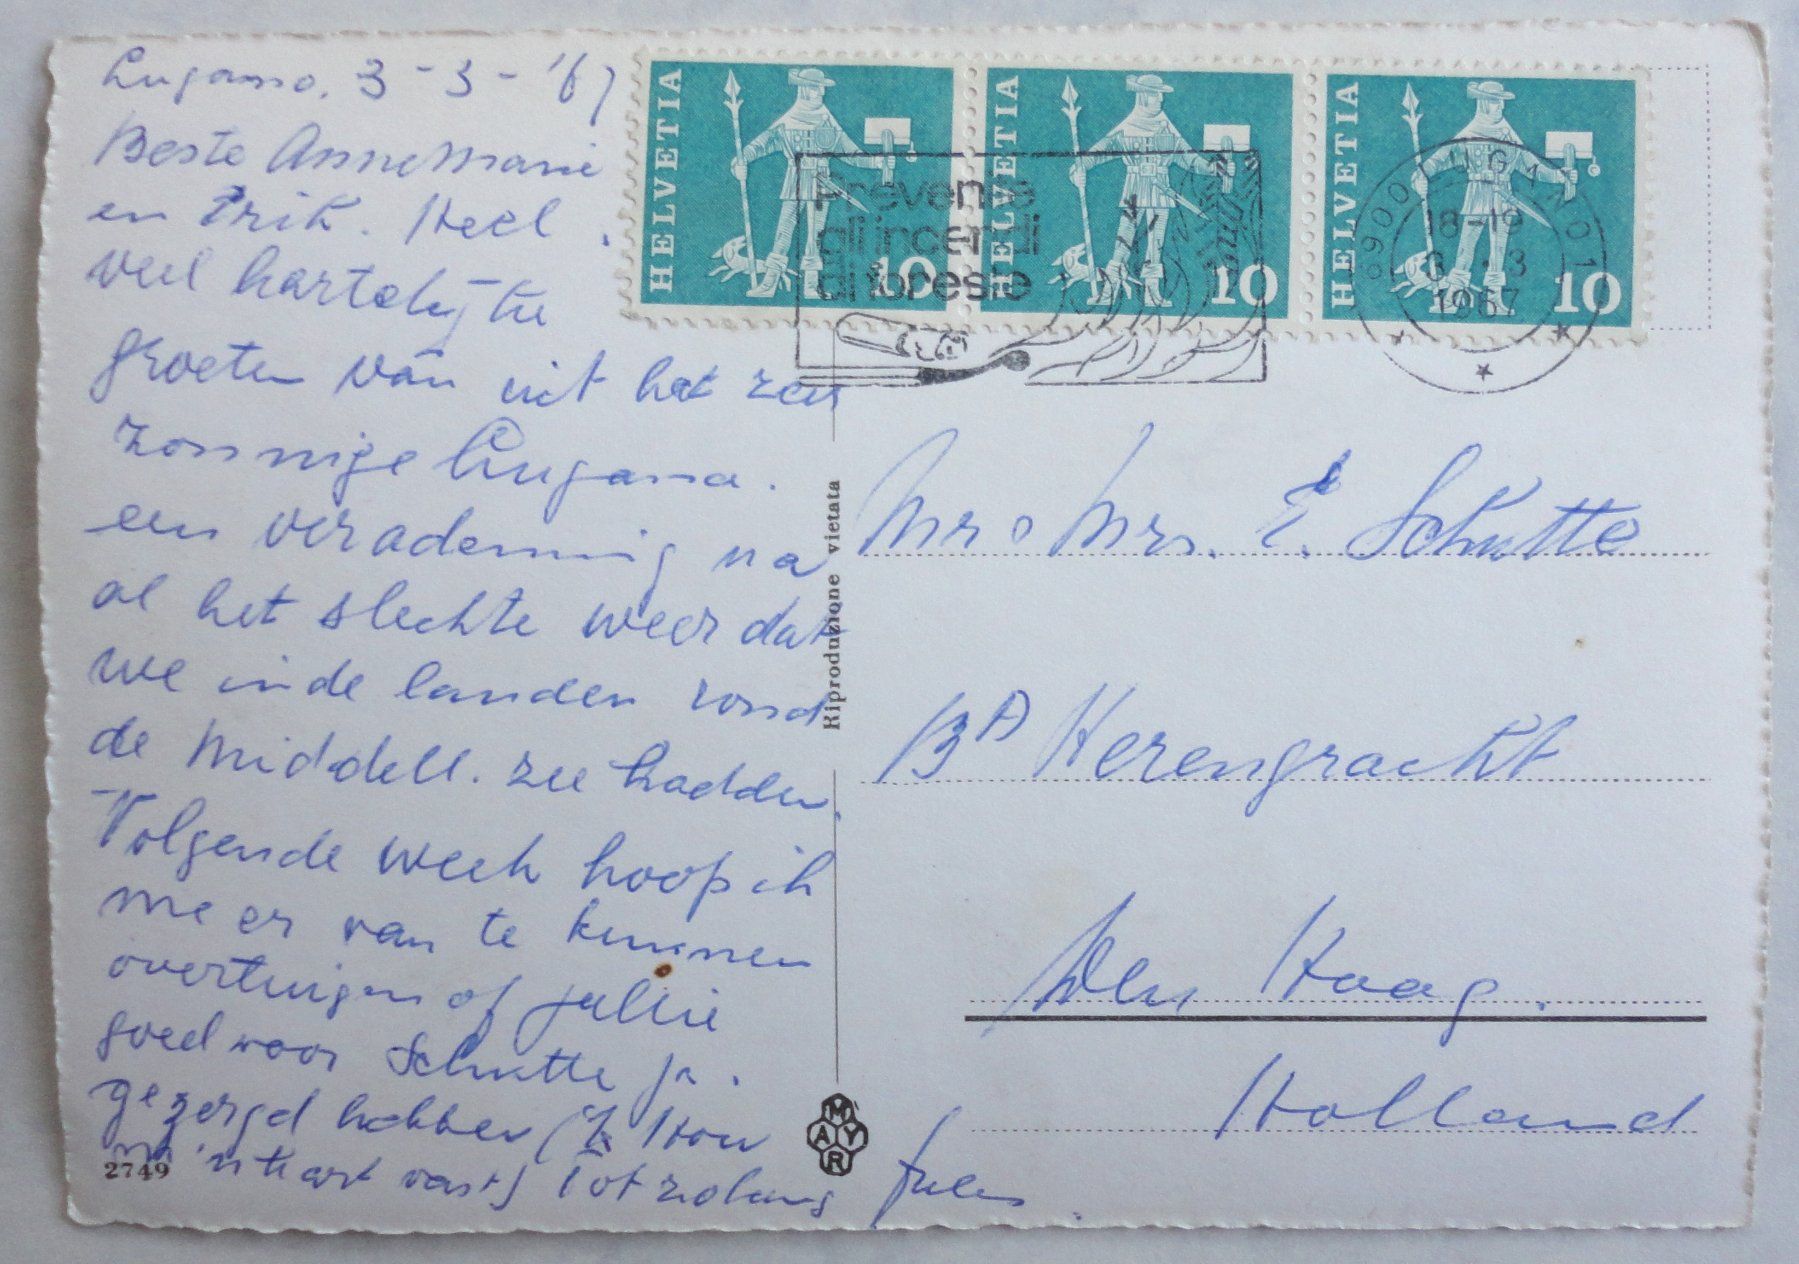 Lugano. 3-3-'67
Beste AnneMarie
en Erik. Heel
veel hartelijke
groeten van uit het zeer
zonnige Lugano.
een verademing na
al het slechte weer dat
we in de landen rond
de Middell. zee hadden.
Volgende week hoop ik
me er van te kunnen
overtuigen of jullie
goed voor Schutte jr.
gezorgd hebben (Ik Hou
m'n hart vast) Tot zolang
Jules
HELVETIA 10
HELVETIA 10
HELVETIA 10
Prevenite
gli incendi
di foreste
6900 LUGANO 1
18-19
3.3
1967
Mr & Mrs. E. Schutte
13A Herengracht
Den Haag.
Holland
Riproduzione vietata
MAYR
2749